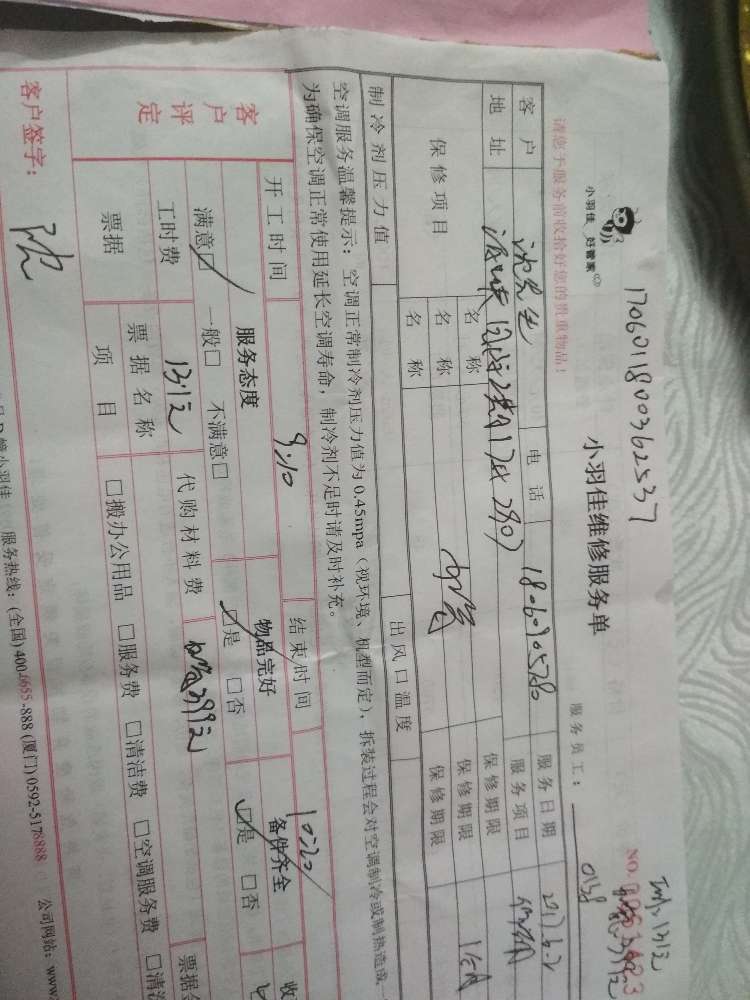 1706011800362537
小羽佳 好管家
小羽佳维修服务单
NO.
服务员工：
0158
请您于服务前收拾好您的贵重物品！
客户 沈先生 电话 18060905780 服务日期 2017.6.2
地址 2907 服务项目
保修项目 名称 保修期限
名称 保修期限 1个月
名称 保修期限
制冷剂压力值 出风口温度
空调服务温馨提示：空调正常制冷剂压力值为0.45mpa（视环境、机型而定），拆装过程会对空调制冷或制热造成
为确保空调正常使用延长空调寿命，制冷剂不足时请及时补充。
开工时间 9:10 结束时间 10:20
客户评定 服务态度 物品完好 备件齐全 收
满意□ 一般□ 不满意□ □是 □否 □是 □否
工时费 131元 代购材料费 399元
票据 票据名称 票据金
项目 □搬办公用品 □服务费 □清洁费 □空调服务费 □清洁
客户签字： 沈
小羽佳 服务热线：(全国)400-6655-888 (厦门)0592-5178888 公司网站：www